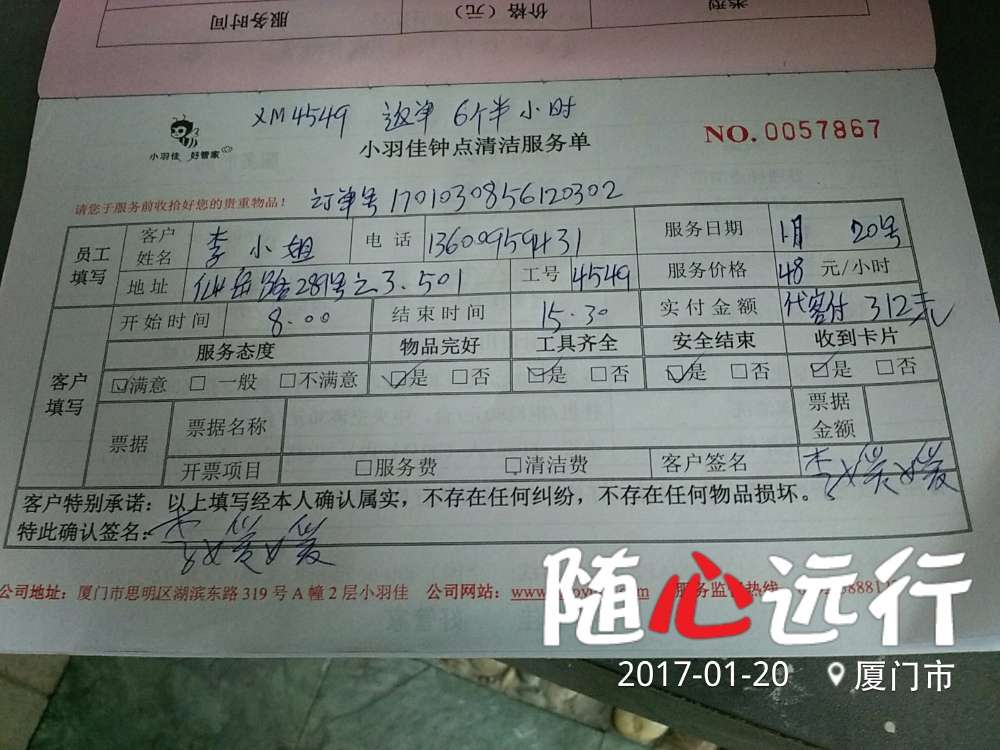 服务时间 价格（元） 类型
XM4549 返单 6个半小时
小羽佳 好管家
小羽佳钟点清洁服务单
NO.0057867
请您于服务前收拾好您的贵重物品！ 订单号 1701030856120302
员工填写 客户姓名 李小姐 电话 13600959431 服务日期 1月 20号
地址 仙岳路289号之3.501 工号 4549 服务价格 48 元/小时
客户填写 开始时间 8.00 结束时间 15.30 实付金额 代客付 312元
服务态度 物品完好 工具齐全 安全结束 收到卡片
☑满意 □一般 □不满意 ☑是 □否 ☑是 □否 ☑是 □否 ☑是 □否
票据 票据名称 票据金额
开票项目 □服务费 □清洁费 客户签名 李媛媛
客户特别承诺：以上填写经本人确认属实，不存在任何纠纷，不存在任何物品损坏。
特此确认签名：李媛媛
公司地址：厦门市思明区湖滨东路 319 号 A 幢 2 层小羽佳 公司网站： 服务监督热线
随心远行
2017-01-20 厦门市